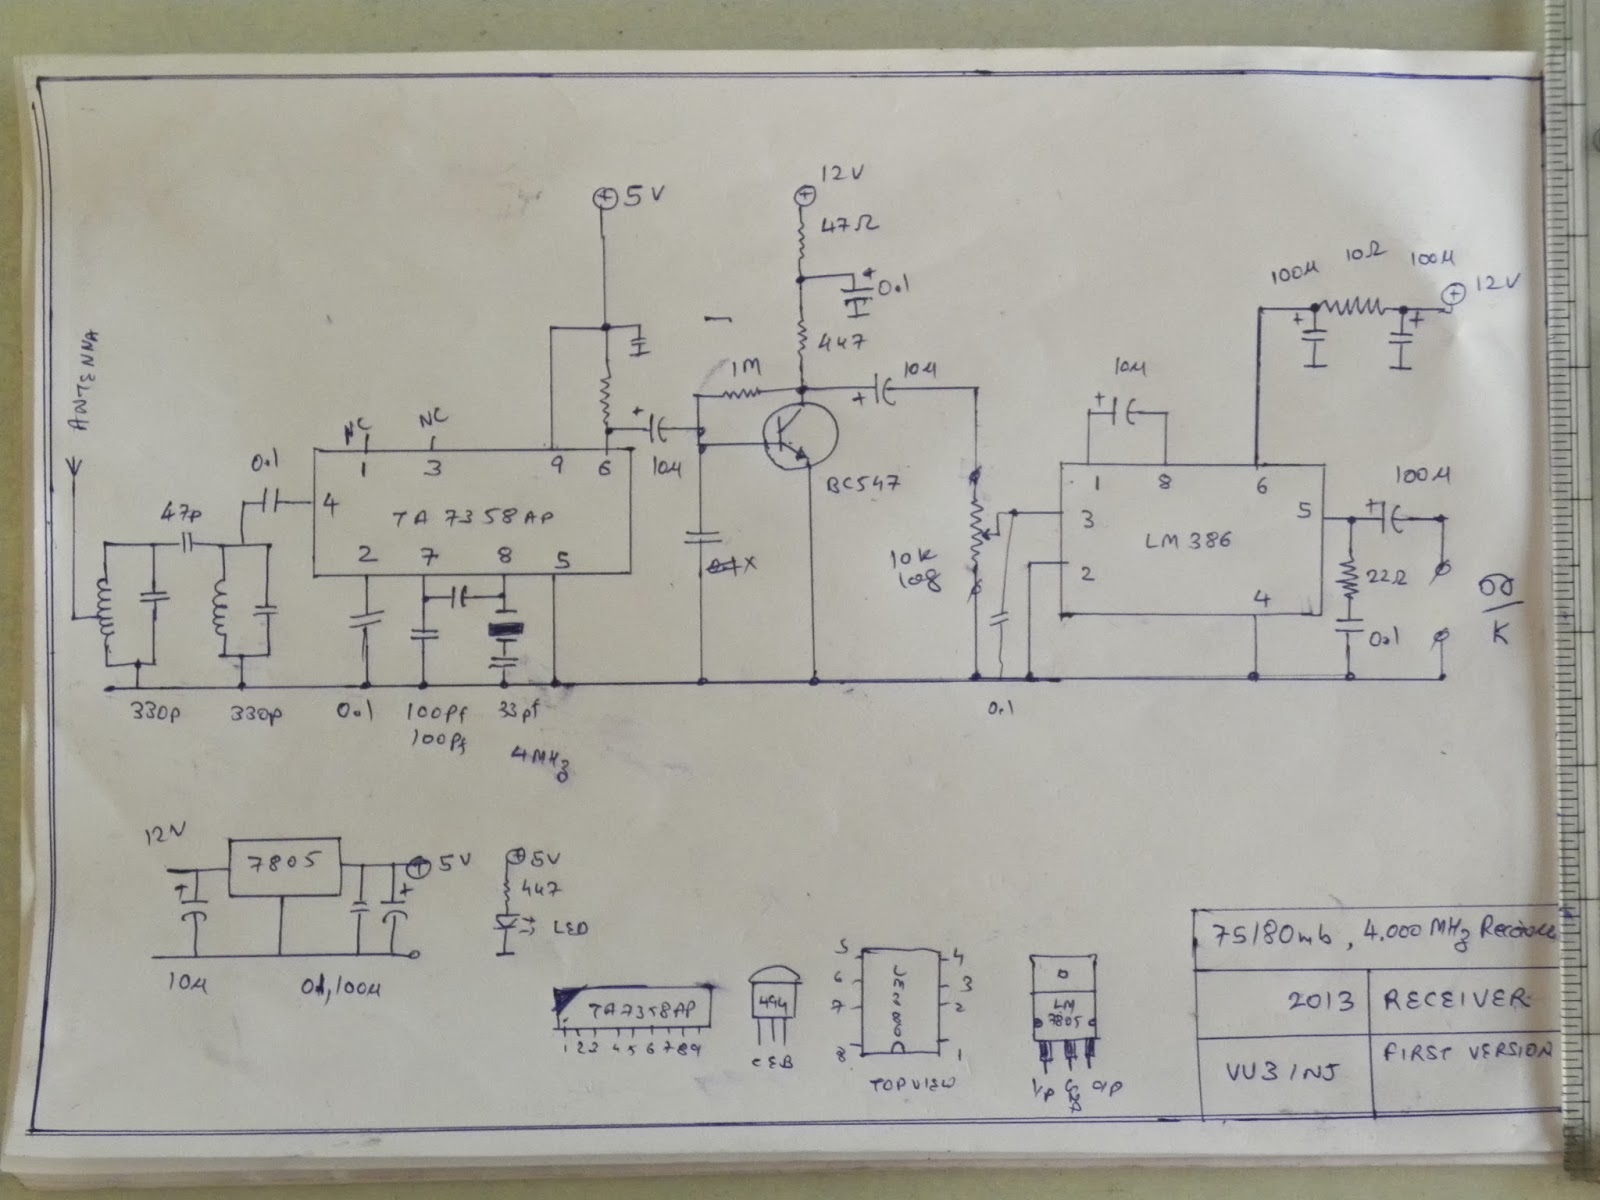 12V
5V
47Ω
0.1
447
10Ω
100µ
100µ
12V
ANTENNA
1M
10µ
10µ
NC
NC
0.1
1
3
9
6
10µ
BC547
1
8
6
100µ
47p
4
TA 7358AP
3
LM 386
5
2
7
8
5
10K
log
2
4
22Ω
0.1
330p
330p
0.1
100pf
33pf
0.1
100pf
4MHz
12V
7805
5V
5V
447
LED
10µ
0.1, 100µ
75/80mb, 4.000 MHz Receiver
2013
RECEIVER
VU3INJ
FIRST VERSION
TA7358AP
1 2 3 4 5 6 7 8 9
494
C E B
5
4
6
3
7
2
8
1
TOP VIEW
LM
7805